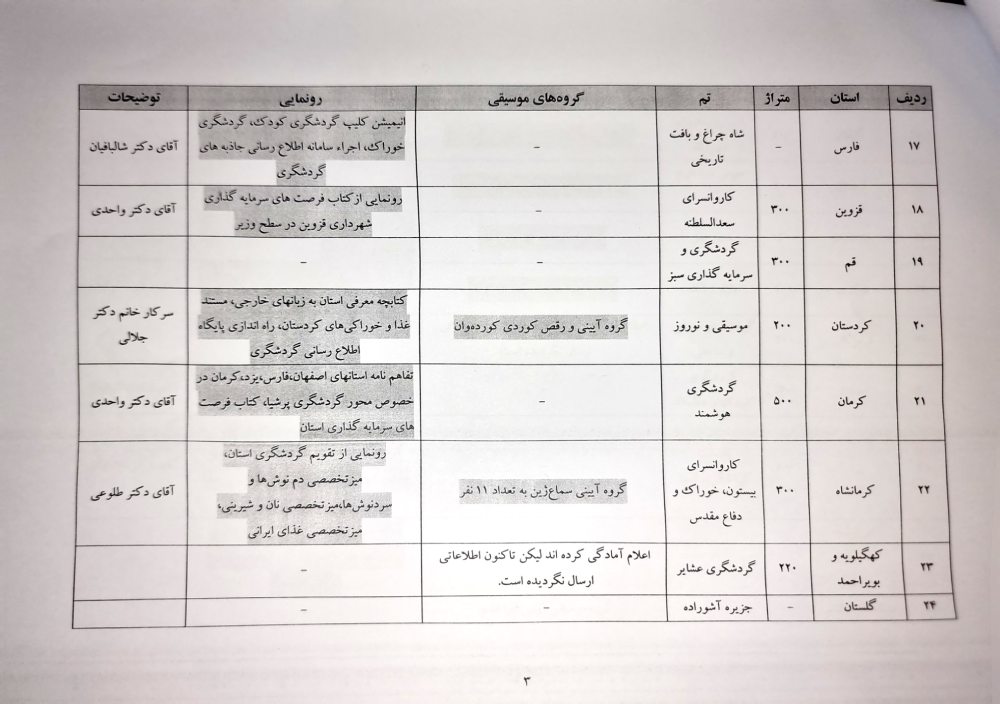 ردیف استان تم متراژ گروه‌های موسیقی رونمایی توضیحات
۱۷ فارس شاه چراغ و بافت تاریخی – – انیمیشن کلیپ گردشگری کودک، گردشگری خوراک، اجراء سامانه اطلاع رسانی جاذبه های گردشگری آقای دکتر شالبافیان
۱۸ قزوین کاروانسرای سعدالسلطنه ۳۰۰ – رونمایی از کتاب فرصت های سرمایه گذاری شهرداری قزوین در سطح وزیر آقای دکتر واحدی
۱۹ قم گردشگری و سرمایه گذاری سبز ۳۰۰ – –
۲۰ کردستان موسیقی و نوروز ۲۰۰ گروه آیینی و رقص کوردی کورده‌وان کتابچه معرفی استان به زبانهای خارجی، مستند غذا و خوراکی‌های کردستان، راه اندازی پایگاه اطلاع رسانی گردشگری سرکار خانم دکتر جلالی
۲۱ کرمان گردشگری هوشمند ۵۰۰ – تفاهم نامه استانهای اصفهان،فارس،یزد،کرمان در خصوص محور گردشگری پرشیا، کتاب فرصت های سرمایه گذاری استان آقای دکتر واحدی
۲۲ کرمانشاه کاروانسرای بیستون، خوراک و دفاع مقدس ۳۰۰ گروه آیینی سماع‌ژین به تعداد ۱۱ نفر رونمایی از تقویم گردشگری استان، میزتخصصی دم نوش‌ها و سردنوش‌ها،میزتخصصی نان و شیرینی، میزتخصصی غذای ایرانی آقای دکتر طلوعی
۲۳ کهگیلویه و بویراحمد گردشگری عشایر ۲۲۰ اعلام آمادگی کرده اند لیکن تاکنون اطلاعاتی ارسال نگردیده است. –
۲۴ گلستان جزیره آشوراده – – –
۳